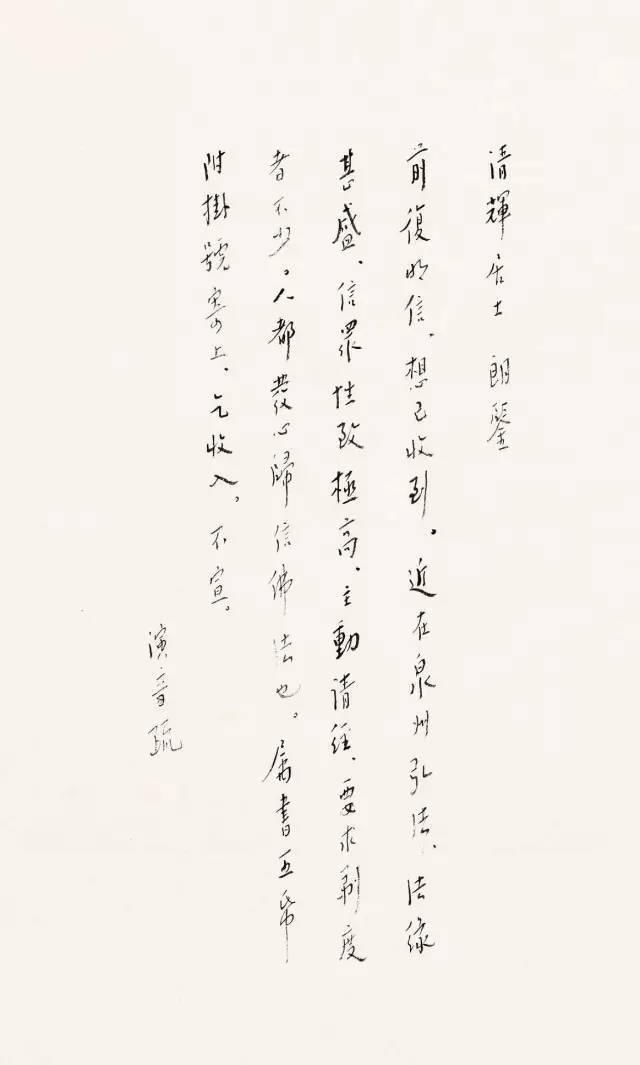 清輝居士 朗鑒
前復明信、想已收到。近在泉州弘法、法緣
甚盛、信眾性致極高、主動請經、要求剃度
者不少。人都發心歸信佛法也。属書五帋
附掛號寄上、乞收入。不宣。
演音疏